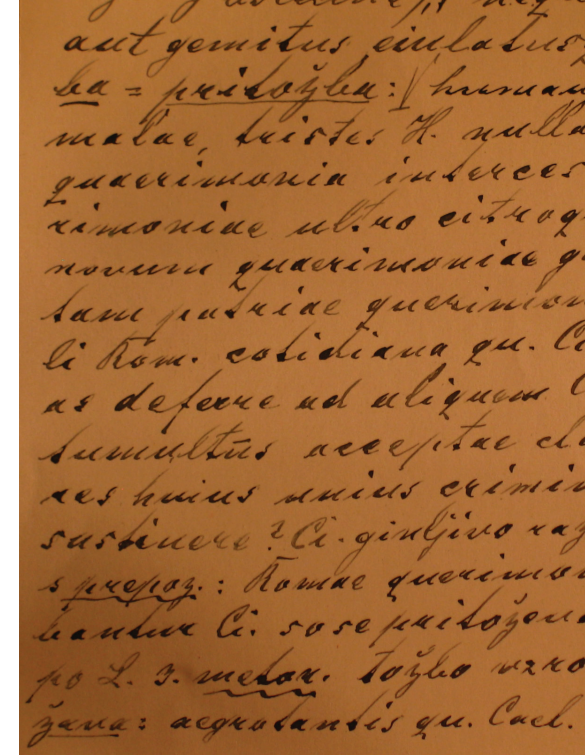 aut gemitus, eiulatus,
ba = pritožba: human
malae, tristes H. nulla
quaerimonia interces
rimoniae ultro citroq
novum quaerimoniae g
tam patriae querimon
li Rom. cotidiana qu. Ci
as deferre ad aliquem C
tumultūs acceptae cl
res huius unius crimin
sustinere? Ci. ginljivo raz
s prepoz.: Romae querimon
bantur Ci. so se pritožena
po L. 3. meton. tožbo vzro
žava: aegrotantis qu. Cael.